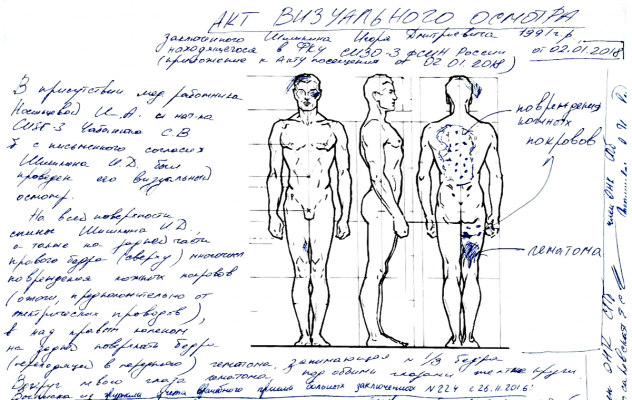 АКТ ВИЗУАЛЬНОГО ОСМОТРА
заключенного Шишкина Игоря Дмитриевича 1991 г.р.
находящегося в ФКУ СИЗО-3 ФСИН России
(приложение к Акту посещения от 02.01.2018)
от 02.01.2018
В присутствии мед работника
И.А. и нач-ка
СИЗО-3 С.В
с письменного согласия
Шишкина И.Д. был
проведен его визуальный
осмотр.
На всей поверхности
спины Шишкина И.Д.,
а также на задней части
правого бедра (сверху) многочисл
повреждения кожных покровов
(ожоги, предположительно от
электрических проводов),
над правым коленом
на задней поверхности бедра
(переходящей в переднюю) гематома, занимающая ≈ 1/3 бедра
Вокруг левого глаза гематома, под обоими глазами желтые круги
Выписка из журнала учета врачебного приема больных заключенных №224 с 26.11.2016:
повреждения
кожных
покровов
гематома
член ОНК СПб